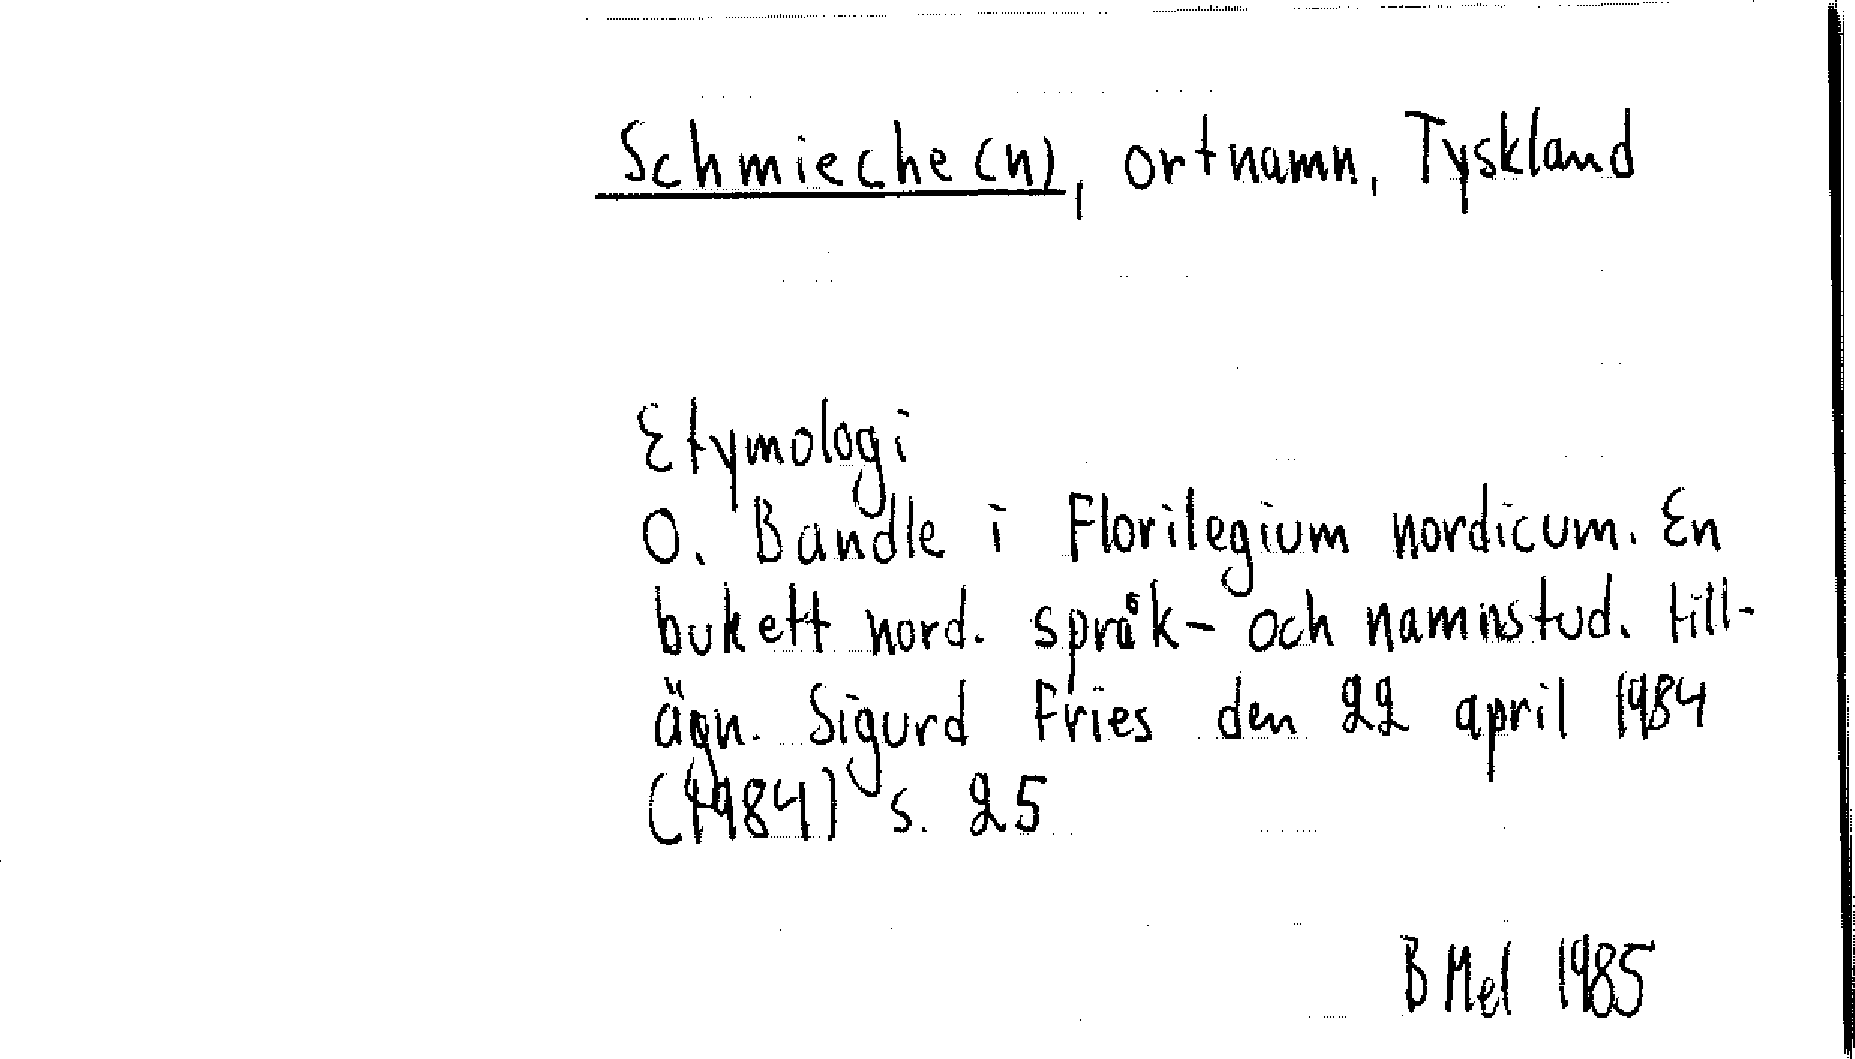 Schmieche(n), ortnamn, Tyskland
Etymologi
O. Bandle i Florilegium nordicum. En
bukett nord. språk- och namnstud. till-
ägn. Sigurd Fries den 22 april 1984
(1984) s. 25
B Mel 1985